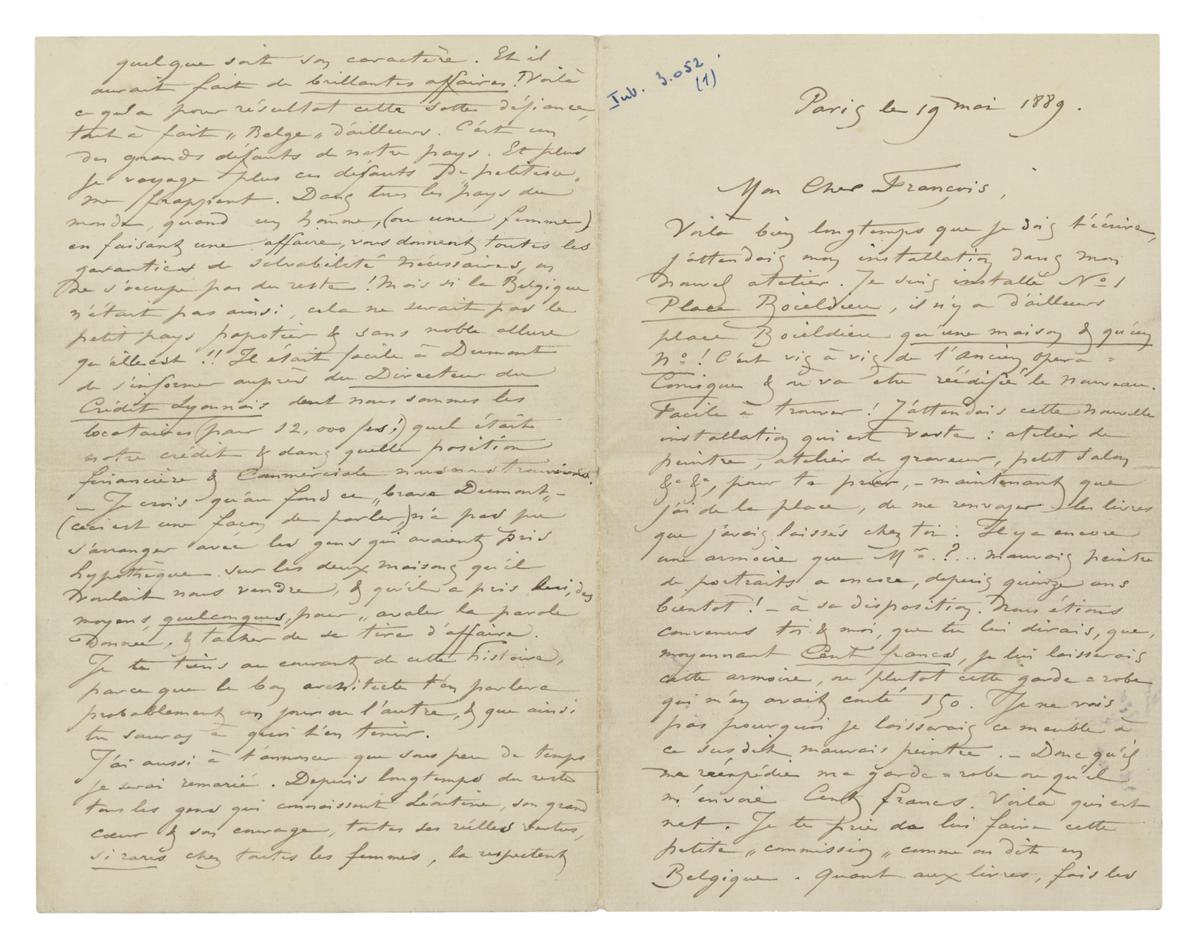 Inv. 3.052
(1)
Paris le 19 mai 1889.
Mon Cher François,
Voilà bien longtemps que je dois t'écrire,
j'attendais mon installation dans mon
nouvel atelier. Je suis installé No 1
Place Boieldieu, il n'y a d'ailleurs
place Boieldieu qu'une maison & qu'un
No ! C'est vis à vis de l'ancien opéra =
Comique & où va être réédifié le nouveau.
Facile à trouver ! J'attendais cette nouvelle
installation qui est vaste : atelier de
peintre, atelier de graveur, petit salon
&a &a, pour te prier, – maintenant que
j'ai de la place, de me renvoyer les livres
que j'avais laissés chez toi. Il y a encore
une armoire que Mr ..?... mauvais peintre
de portraits a encore, depuis quinze ans
bientot ! – à sa disposition. Nous étions
convenus toi & moi, que tu lui dirais, que,
moyennant Cent francs, je lui laisserais
cette armoire, ou plutot cette garde=robe
qui m'en avait couté 150. Je ne vois
pas pourquoi je laisserais ce meuble à
ce susdit mauvais peintre. – Donc qu'il
me réexpédie ma garde=robe ou qu'il
m'envoie Cent francs. Voilà qui est
net. Je te prie de lui faire cette
petite „commission„ comme on dit en
Belgique. Quant aux livres, fais les
quelque soit son caractère. Et il
aurait fait de brillantes affaires ! Voilà
ce qu'a pour résultat cette sotte défiance,
tout à fait „Belge„ d'ailleurs. C'est un
des grands défauts de notre pays. Et plus
je voyage plus ces défauts de petitesse,
me frappent. Dans tous les pays du
monde, quand un homme, (ou une femme)
en faisant une affaire, vous donnent toutes les
garanties de solvabilité nécessaires, on
ne s'occupe pas du reste ! Mais si la Belgique
n'était pas ainsi, cela ne serait pas le
petit pays papotier & sans noble allure
qu'elle est !! Il était facile à Dumont
de s'informer auprès du Directeur du
Crédit Lyonnais dont nous sommes les
locataires (pour 12,000 frs !) quel était
notre crédit & dans quelle position
financière & Commerciale nous nous trouvions.
– Je crois qu'au fond ce „brave Dumont„ –
(ceci est une façon de parler,) n'a pas pu
s'arranger avec les gens qui avaient pris
hypothèque sur les deux maisons qu'il
voulait nous vendre, & qu'il a pris lui, des
moyens, quelconques, pour „avaler la parole
donnée, & tacher de se tirer d'affaire.
Je te tiens au courant de cette histoire,
parce que le bon architecte t'en parlera
probablement un jour ou l'autre, & que ainsi
tu sauras à quoi t'en tenir.
J'ai aussi à t'annoncer que sous peu de temps
je serai remarié. Depuis longtemps du reste
tous les gens qui connaissent Léontine, son grand
cœur & son courage, toutes ses réelles vertus,
si rares chez toutes les femmes, la respectent